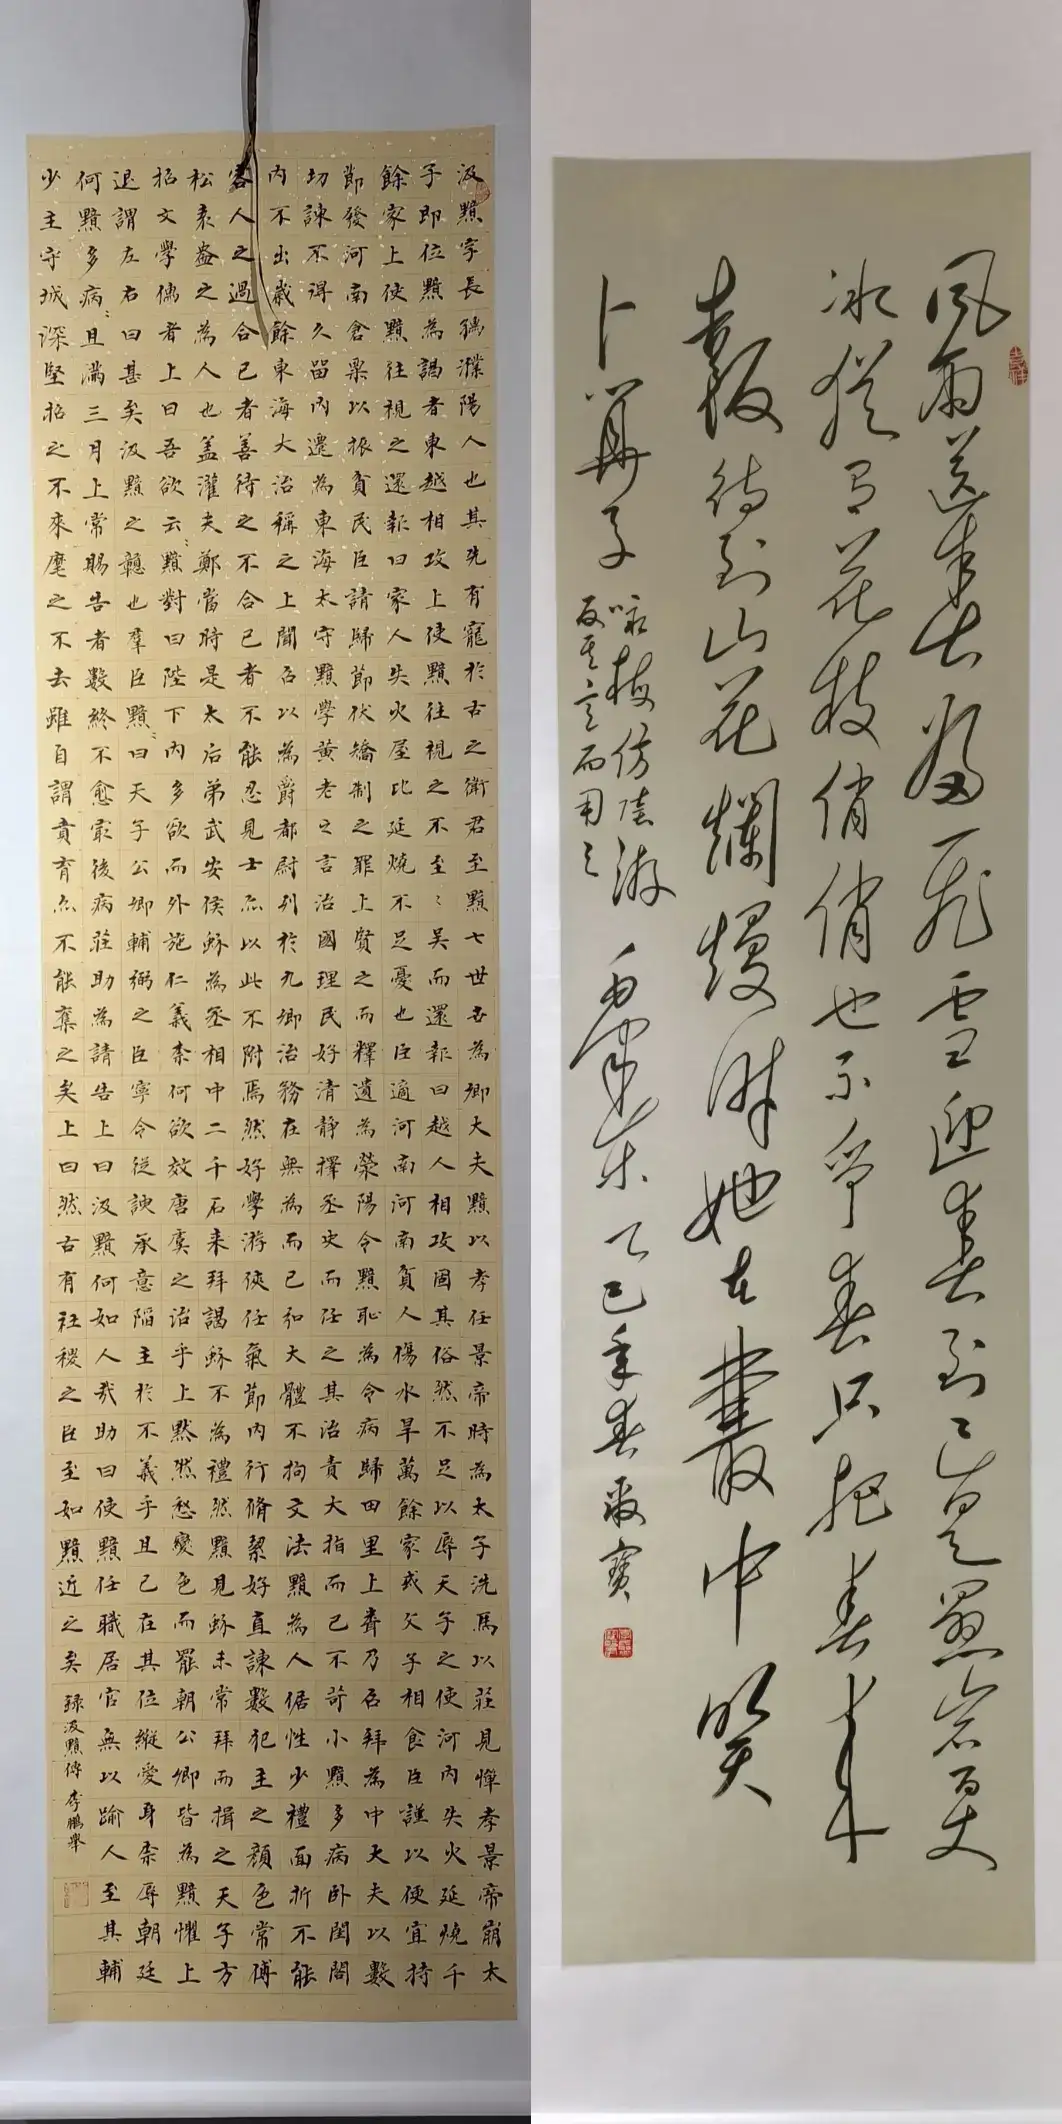 汲黯字長孺濮陽人也其先有寵於古之衛君至黯七世世為卿大夫黯以孝任景帝時為太子洗馬以莊見憚孝景帝崩太
子即位黯為謁者東越相攻上使黯往視之不至吳而還報曰越人相攻固其俗然不足以辱天子之使河內失火延燒千
餘家上使黯往視之還報曰家人失火屋比延燒不足憂也臣適河南河南貧人傷水旱萬餘家或父子相食臣謹以便宜持
節發河南倉粟以振貧民臣請歸節伏矯制之罪上賢之而釋遺為滎陽令黯恥為令病歸田里上聞乃召拜為中大夫以數
切諫不得久留內遷為東海太守黯學黃老之言治國理民好清靜擇丞史而任之其治責大指而已不苛小黯多病臥閨閤
內不出歲餘東海大治稱之上聞召以為爵都尉列於九卿治務在無為而已弘大體不拘文法黯為人倨性少禮面折不能
容人之過合己者善待之不合己者不能忍見士亦以此不附焉然好學游俠任氣節內行脩絜好直諫數犯主之顏色常傅
松袁盎之為人也蓋灌夫鄭當時是太后弟武安侯蚡為丞相中二千石来拜謁蚡不為禮然黯見蚡未常拜而揖之天子方
招文學儒者上曰吾欲云黯對曰陛下內多欲而外施仁義柰何欲效唐虞之治乎上默然愁變色而罷朝公卿皆為黯懼上
退謂左右曰甚矣汲黯之戇也羣臣黯曰天子公卿輔弼之臣寧令從諛承意陷主於不義乎且已在其位縱愛身柰辱朝廷
何黯多病且滿三月上常賜告者數終不愈最後病莊助為請告上曰汲黯何如人哉助曰使黯任職居官無以踰人至其輔
少主守城深堅招之不來麾之不去雖自謂賁育亦不能奪之矣上曰然古有社稷之臣至如黯近之矣
錄汲黯傳 李鵬舉
风雨送春归飞雪迎春到已是悬崖百丈
冰犹有花枝俏俏也不争春只把春来
报待到山花爛熳時她在叢中笑
卜算子
咏梅仿陆游
反其意而用之
毛泽东 乙巳年春 敬寶